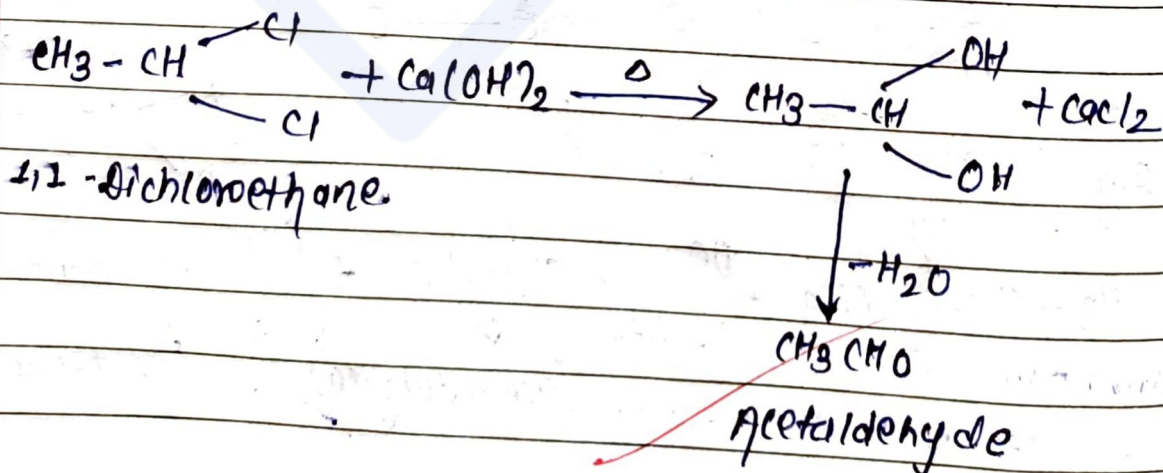 CH3 - CH Cl Cl + Ca(OH)2 Δ → CH3 — CH OH OH + CaCl2
1,1 - Dichloroethane.
- H2O
CH3 CHO
Acetaldehyde